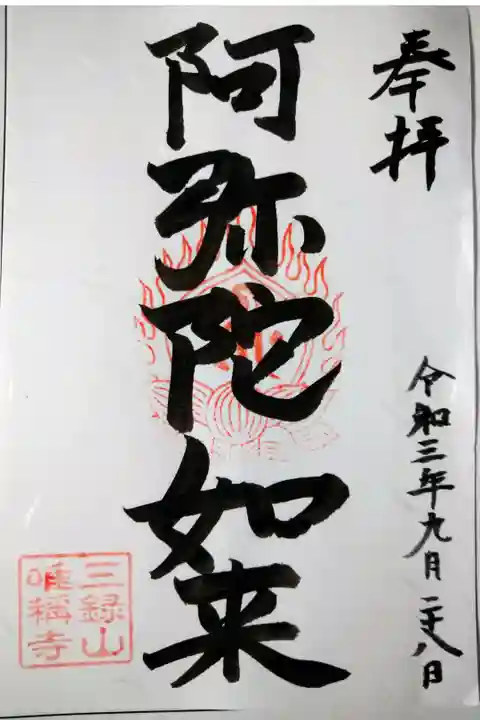 奉拝
阿弥陀如来
令和三年九月二十八日
三録山
唯称寺